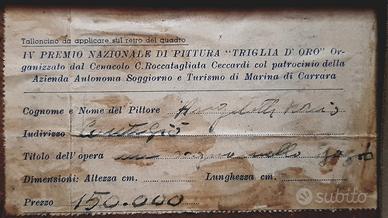 Talloncino da applicare sul retro del quadro
IV PREMIO NAZIONALE DI PITTURA "TRIGLIA D' ORO" Or-
ganizzato dal Cenacolo C. Roccatagliata Ceccardi col patrocinio della
Azienda Autonoma Soggiorno e Turismo di Marina di Carrara
Cognome e Nome del Pittore
Indirizzo
Titolo dell'opera un
Dimensioni: Altezza cm. Lunghezza cm.
Prezzo 150.000
subito